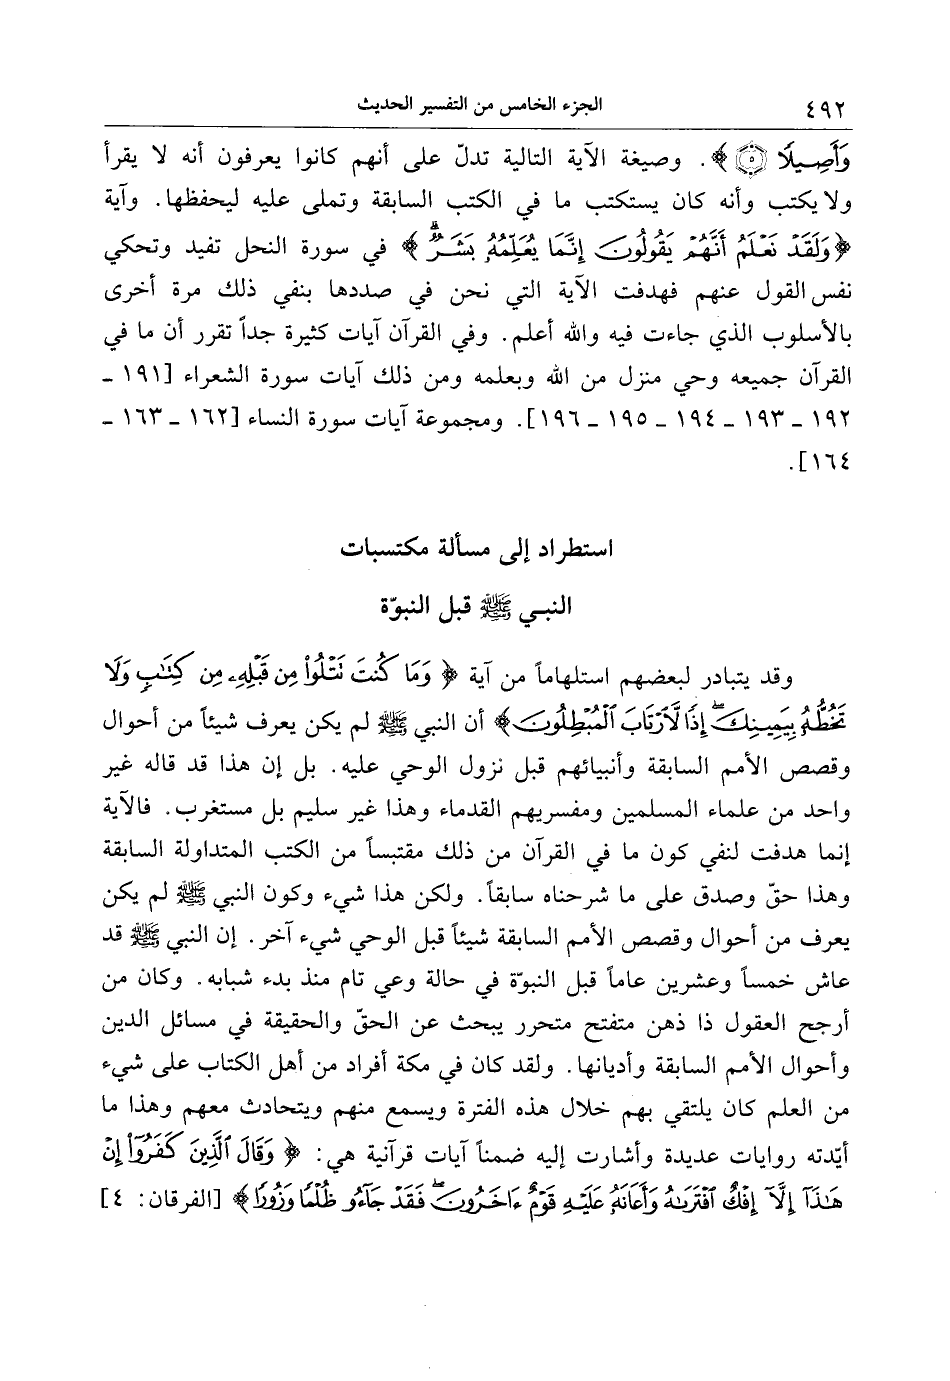 ٤٩٢
الجزء الخامس من التفسير الحديث
وَأَصِيلًا ۝٥ ﴾. وصيغة الآية التالية تدلّ على أنهم كانوا يعرفون أنه لا يقرأ
ولا يكتب وأنه كان يستكتب ما في الكتب السابقة وتملى عليه ليحفظها. وآية
﴿ وَلَقَدْ نَعْلَمُ أَنَّهُمْ يَقُولُونَ إِنَّمَا يُعَلِّمُهُ بَشَرٌ ۗ ﴾ في سورة النحل تفيد وتحكي
نفس القول عنهم فهدفت الآية التي نحن في صددها بنفي ذلك مرة أخرى
بالأسلوب الذي جاءت فيه والله أعلم. وفي القرآن آيات كثيرة جداً تقرر أن ما في
القرآن جميعه وحي منزل من الله وبعلمه ومن ذلك آيات سورة الشعراء [١٩١ ـ
١٩٢ ـ ١٩٣ ـ ١٩٤ ـ ١٩٥ ـ ١٩٦]. ومجموعة آيات سورة النساء [١٦٢ ـ ١٦٣ ـ
١٦٤].
استطراد إلى مسألة مكتسبات
النبي ﷺ قبل النبوّة
وقد يتبادر لبعضهم استلهاماً من آية ﴿ وَمَا كُنتَ تَتْلُوا۟ مِن قَبْلِهِۦ مِن كِتَٰبٍ وَلَا
تَخُطُّهُۥ بِيَمِينِكَ ۖ إِذًا لَّٱرْتَابَ ٱلْمُبْطِلُونَ ﴾ أن النبي ﷺ لم يكن يعرف شيئاً من أحوال
وقصص الأمم السابقة وأنبيائهم قبل نزول الوحي عليه. بل إن هذا قد قاله غير
واحد من علماء المسلمين ومفسريهم القدماء وهذا غير سليم بل مستغرب. فالآية
إنما هدفت لنفي كون ما في القرآن من ذلك مقتبساً من الكتب المتداولة السابقة
وهذا حقّ وصدق على ما شرحناه سابقاً. ولكن هذا شيء وكون النبي ﷺ لم يكن
يعرف من أحوال وقصص الأمم السابقة شيئاً قبل الوحي شيء آخر. إن النبي ﷺ قد
عاش خمساً وعشرين عاماً قبل النبوّة في حالة وعي تام منذ بدء شبابه. وكان من
أرجح العقول ذا ذهن متفتح متحرر يبحث عن الحقّ والحقيقة في مسائل الدين
وأحوال الأمم السابقة وأديانها. ولقد كان في مكة أفراد من أهل الكتاب على شيء
من العلم كان يلتقي بهم خلال هذه الفترة ويسمع منهم ويتحادث معهم وهذا ما
أيّدته روايات عديدة وأشارت إليه ضمناً آيات قرآنية هي: ﴿ وَقَالَ ٱلَّذِينَ كَفَرُوٓا۟ إِنْ
هَٰذَآ إِلَّآ إِفْكٌ ٱفْتَرَىٰهُ وَأَعَانَهُۥ عَلَيْهِ قَوْمٌ ءَاخَرُونَ ۖ فَقَدْ جَآءُو ظُلْمًا وَزُورًا ﴾ [الفرقان: ٤]